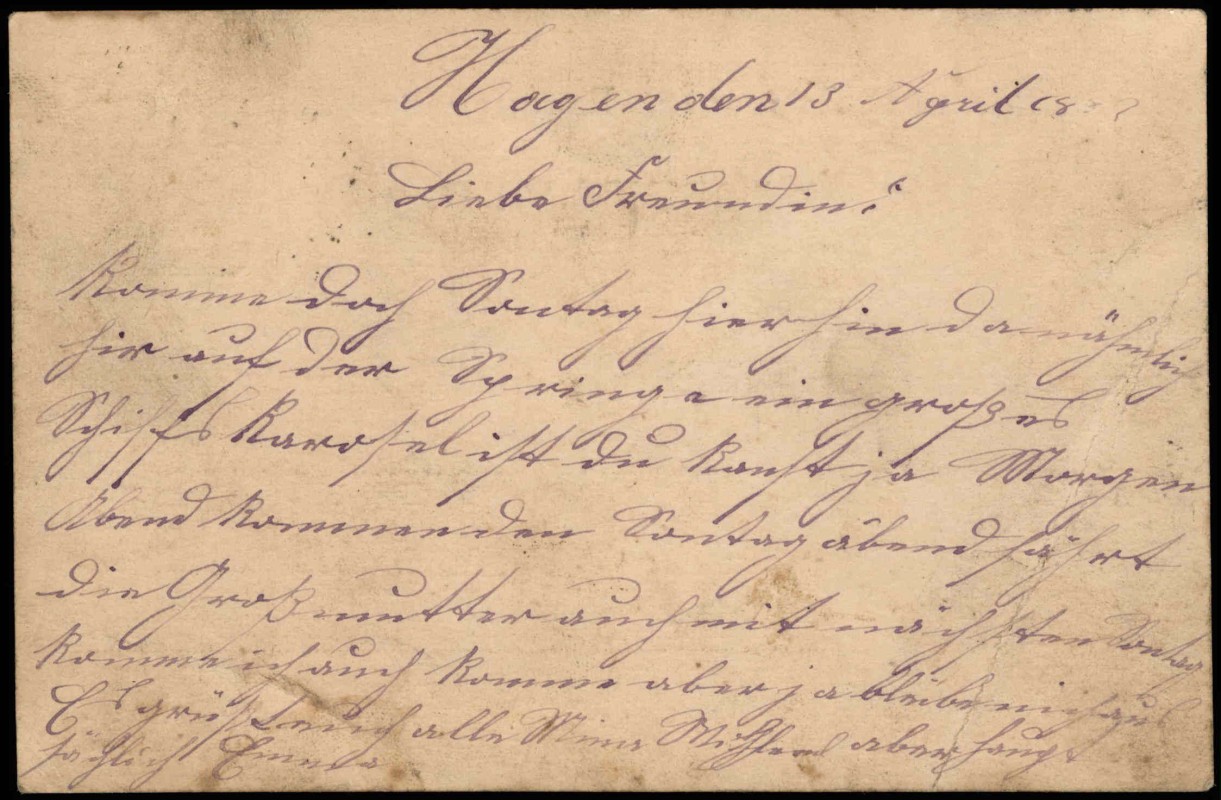 Hagen den 13 April 18
Liebe Freundin!
Komme doch Sontag hier hin da nähmlich
hir auf der Springe ein großes
Schiffs Karosel ist du kanst ja Morgen
Abend kommen den Sontag abend fährt
die Großmutter auch mit nächsten Sontag
komme ich auch komme aber ja bleibe nich aus
Es grüßt euch alle Mina aber haupt
sächlich Emma